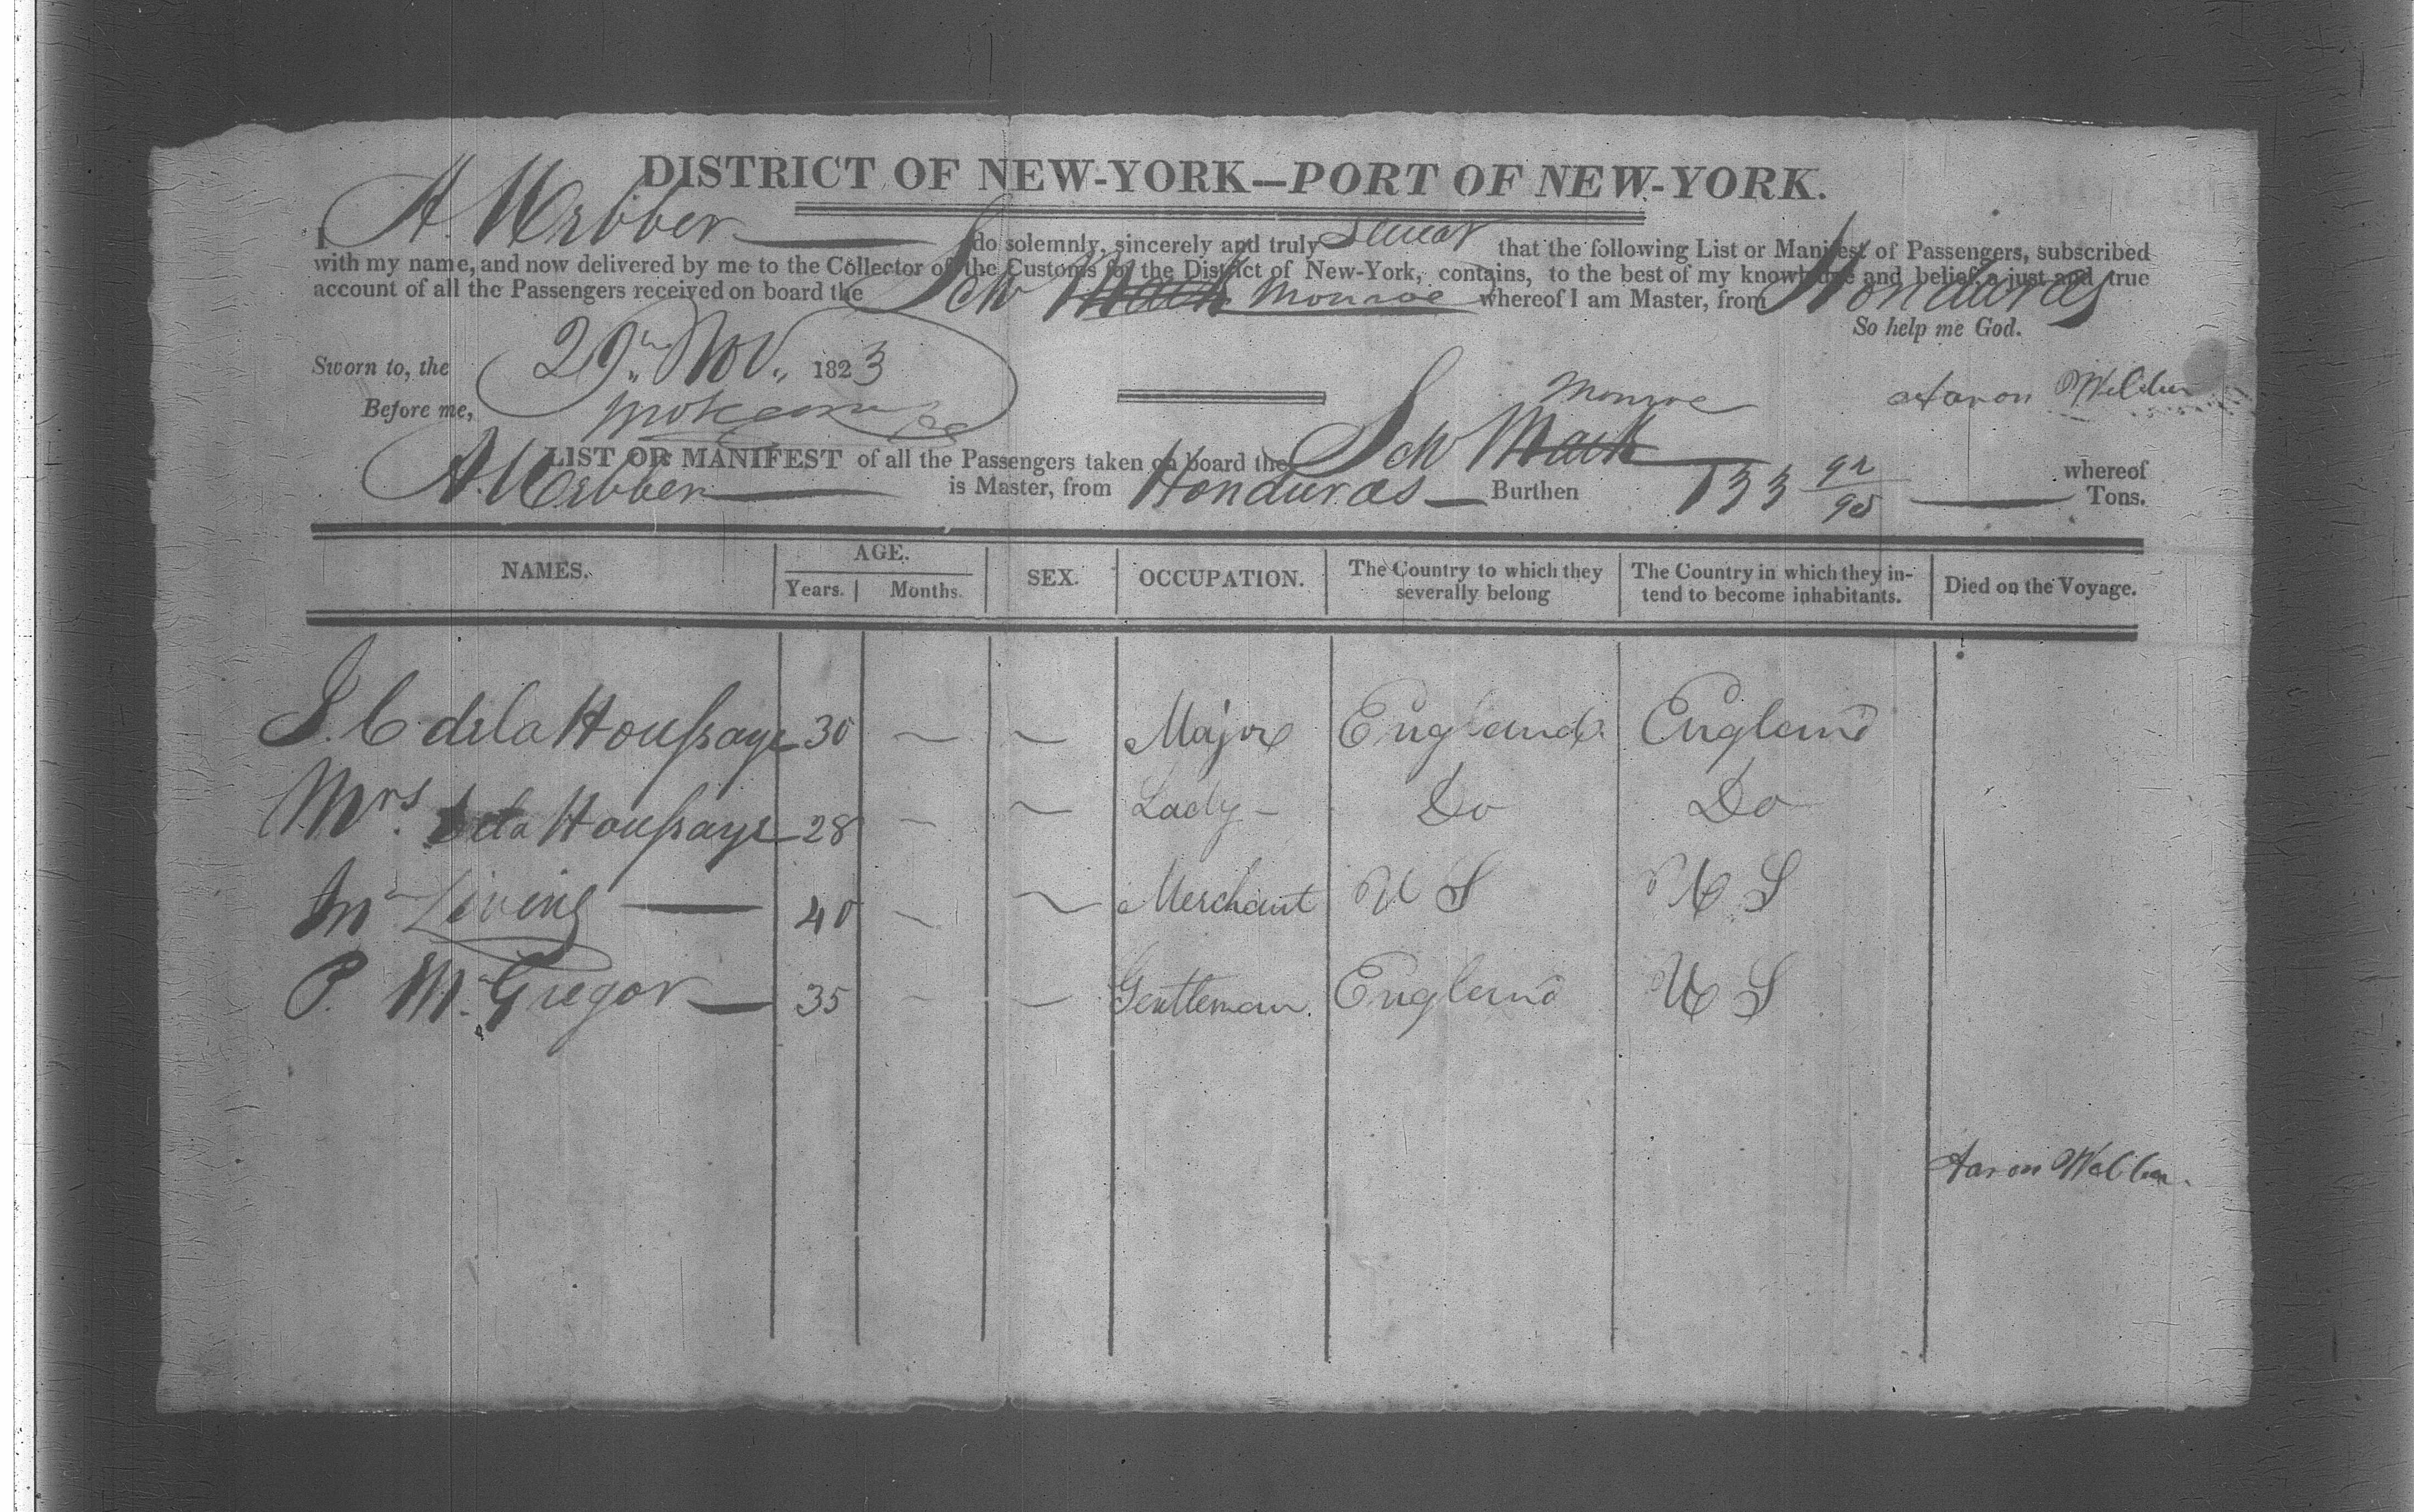 DISTRICT OF NEW-YORK—PORT OF NEW-YORK.
I A. Webber do solemnly, sincerely and truly Swear that the following List or Manifest of Passengers, subscribed
with my name, and now delivered by me to the Collector of the Customs for the District of New-York, contains, to the best of my knowledge and belief, a just and true
account of all the Passengers received on board the Sch Mark Monroe whereof I am Master, from Honduras
So help me God.
Sworn to, the 29th Nov. 1823
Before me,
Aaron Webber
Monroe
LIST OR MANIFEST of all the Passengers taken on board the Sch Mark whereof
A. Webber is Master, from Honduras Burthen 133 92/95 Tons.
NAMES. AGE. Years. Months. SEX. OCCUPATION. The Country to which they severally belong The Country in which they intend to become inhabitants. Died on the Voyage.
J. C de la Houssaye 30 Major England England
Mrs. de la Houssaye 28 Lady Do Do
Mr Living 40 Merchant U S U S
P. McGregor 35 Gentleman. England U S
Aaron Webber